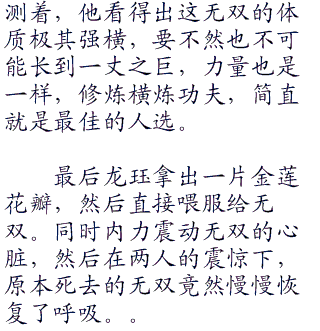 测着，他看得出这无双的体
质极其强横，要不然也不可
能长到一丈之巨，力量也是
一样，修炼横炼功夫，简直
就是最佳的人选。
最后龙珏拿出一片金莲
花瓣，然后直接喂服给无
双。同时内力震动无双的心
脏，然后在两人的震惊下，
原本死去的无双竟然慢慢恢
复了呼吸。。